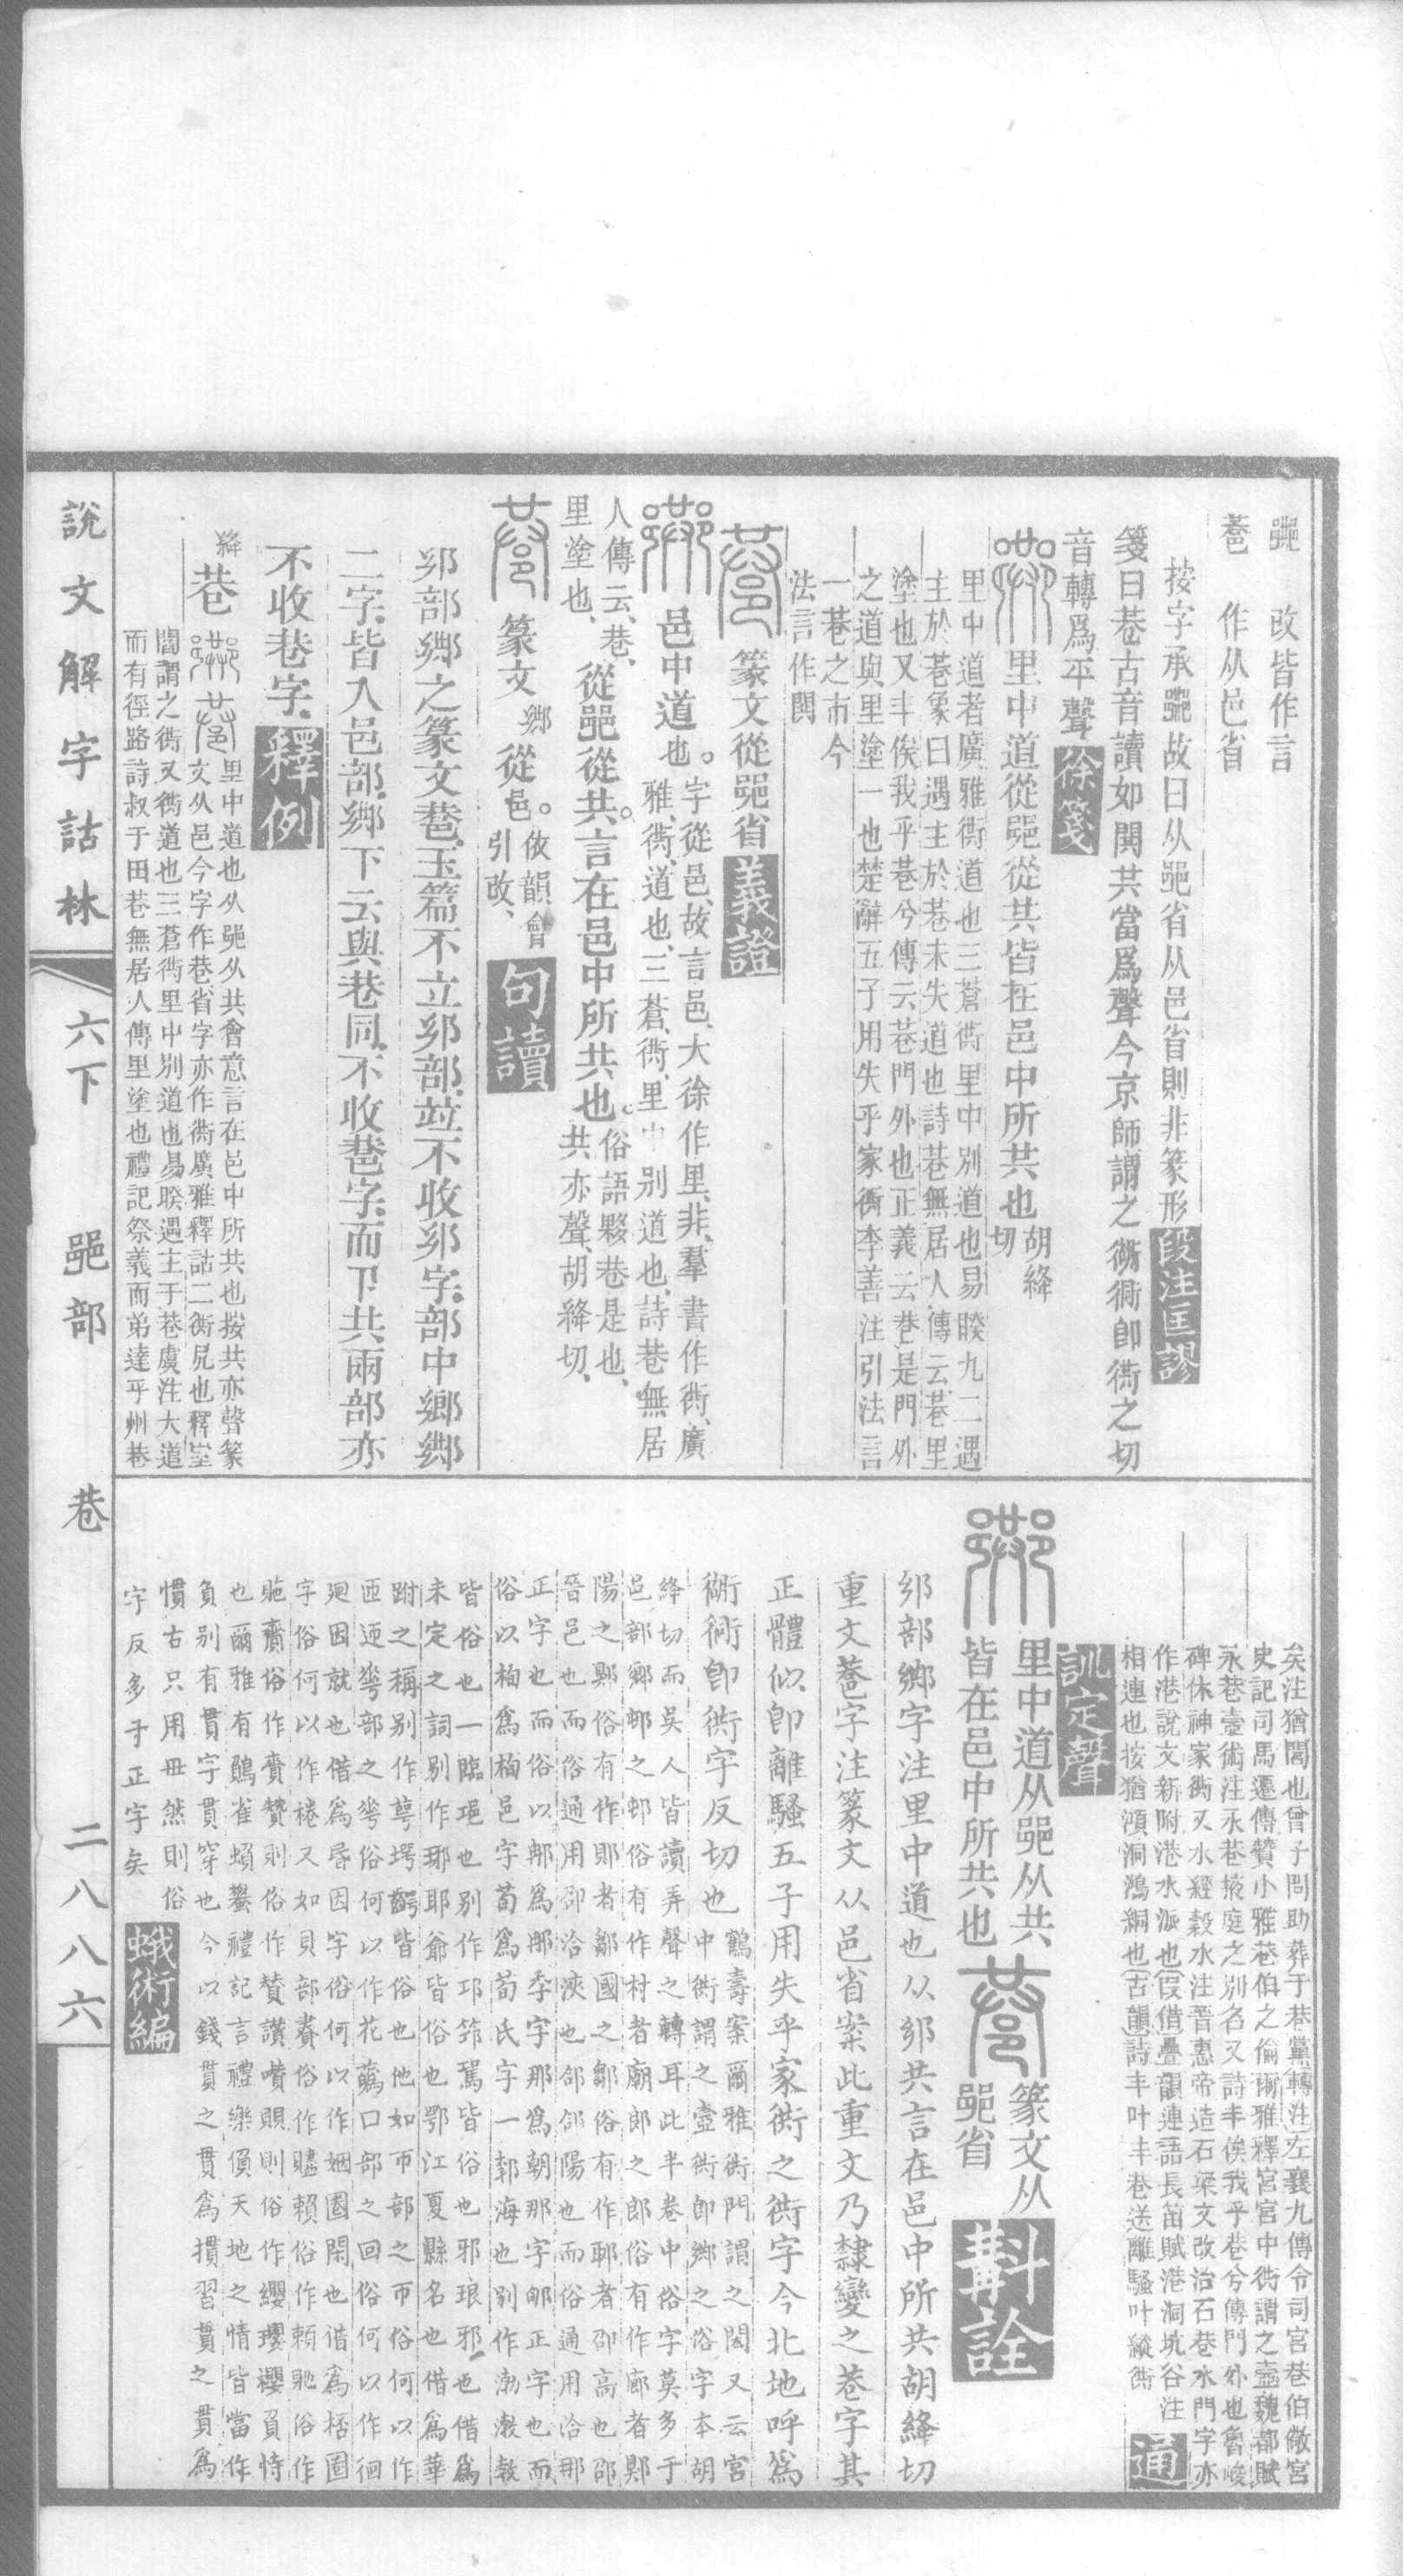 𨞠 改皆作言
𨜕 作从邑省
按字承𨞠故曰从𨛜省从邑省則非篆形 段注匡謬
箋曰巷古音讀如閧共當爲聲今京師謂之衚衕卽衖之切
音轉爲平聲 徐箋
里中道從𨛜從共皆在邑中所共也 胡絳切
里中道者廣雅衖道也三蒼衖里中別道也易睽九二遇
主於巷象曰遇主於巷未失道也詩巷無居人傳云巷里
塗也又丰俟我乎巷兮傳云巷門外也正義云巷是門外
之道與里塗一也楚辭五子用失乎家衖李善注引法言
一巷之市今
法言作閧
篆文從𨛜省 義證
邑中道也。字從邑、故言邑、大徐作里、非、羣書作衖、廣
雅、衖、道也、三蒼、衖、里中別道也、詩巷無居
人傳云、巷、里塗也、從𨛜從共。言在邑中所共也。俗語夥巷是也、
共亦聲、胡絳切、
篆文𨞠從邑。依韻會引改、 句讀
𨛜部𨞠之篆文𨜕、玉篇不立𨛜部、竝不收𨛜字、部中鄉𨞠
二字、皆入邑部、𨞠下云與巷同、不收𨜕字、而㔾共兩部亦
不收巷字、 釋例
絳 巷 里中道也从𨛜从共會意言在邑中所共也按共亦聲篆
文从邑今字作巷省字亦作衖廣雅釋詁二衖凥也釋室
閻謂之衖又衖道也三蒼衖里中別道也易睽遇主于巷虞注大道
而有徑路詩叔于田巷無居人傳里塗也禮記祭義而弟達乎州巷
說文解字詁林 六下 𨛜部 巷 二八八六
矣注猶閭也曾子問助葬于巷黨轉注左襄九傳令司宮巷伯儆宮
史記司馬遷傳贊小雅巷伯之倫爾雅釋宮宮中衖謂之壼魏都賦
永巷壼術注永巷掖庭之別名又詩丰俟我乎巷兮傳門外也魯峻
碑休神家衖又水經穀水注晉惠帝造石梁文改治石巷水門字亦
作港說文新附港水派也假借疊韻連語長笛賦港洞坑谷注
相連也按猶澒洞鴻絧也古韻詩丰叶丰巷送離騷叶縱衖 通
訓定聲
里中道从𨛜从共
皆在邑中所共也
篆文从
𨛜省 斠詮
𨛜部𨞠字注里中道也从𨛜共言在邑中所共胡絳切
重文𨜕字注篆文从邑省案此重文乃隸變之巷字其
正體似卽離騷五子用失乎家衖之衖字今北地呼爲
衚衕卽衖字反切也 鶴壽案爾雅衖門謂之閎又云宮
中衖謂之壼衖卽𨞠之俗字本胡
絳切而吳人皆讀弄聲之轉耳此半卷中俗字莫多于
邑部鄉邨之邨俗有作村者廟郎之郎俗有作廊者鄭
陽之鄭俗有作郥者鄒國之鄒俗有作郰者邵高也邵
晉邑也而俗通用卲洽浹也郃郃陽也而俗通用洽那
正字也而俗以𨙻爲𨙻季字那爲朝那字郇正字也而
俗以栒爲栒邑字荀爲荀氏字一郣海也別作渤漖敎
皆俗也一臨𨛗也別作邛筇篤皆俗也邪琅邪也借爲
未定之詞別作琊耶爺皆俗也鄂江夏縣名也借爲華
跗之稱別作萼堮齶皆俗也他如帀部之帀俗何以作
匝迊𠌶部之𠌶俗何以作花蘤口部之回俗何以作徊
廻因就也借爲䄄因字俗何以作婣圂閑也借爲栝圈
字俗何以作棬又如貝部賚俗作賷賴俗作頼貤俗作
貤齎俗作賫贊則俗作賛讃囋賏則俗作纓瓔䙬負恃
也爾雅有鷏雀蝜䗯禮記言禮樂偩天地之情皆當作
負別有貫字貫穿也今以錢貫之貫爲摜習貫之貫爲
慣古只用毌然則俗
字反多于正字矣 蛾術編